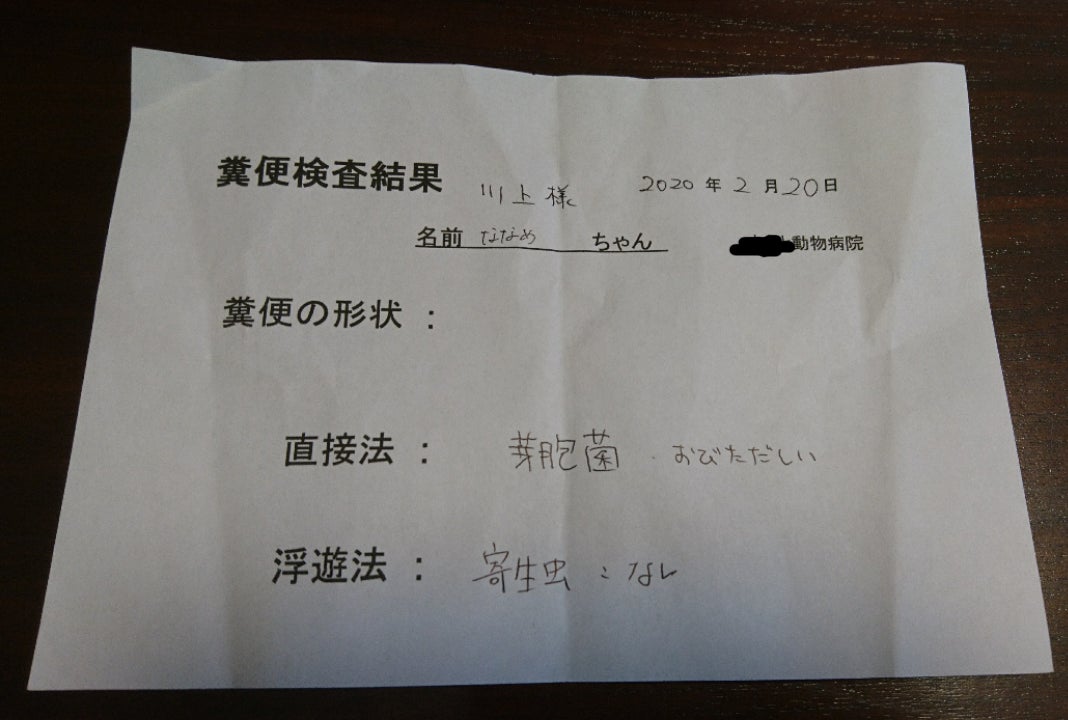 糞便検査結果 川上様 2020年2月20日
名前 ななめ ちゃん 動物病院
糞便の形状：
直接法： 芽胞菌．おびただしい
浮遊法： 寄生虫：なし